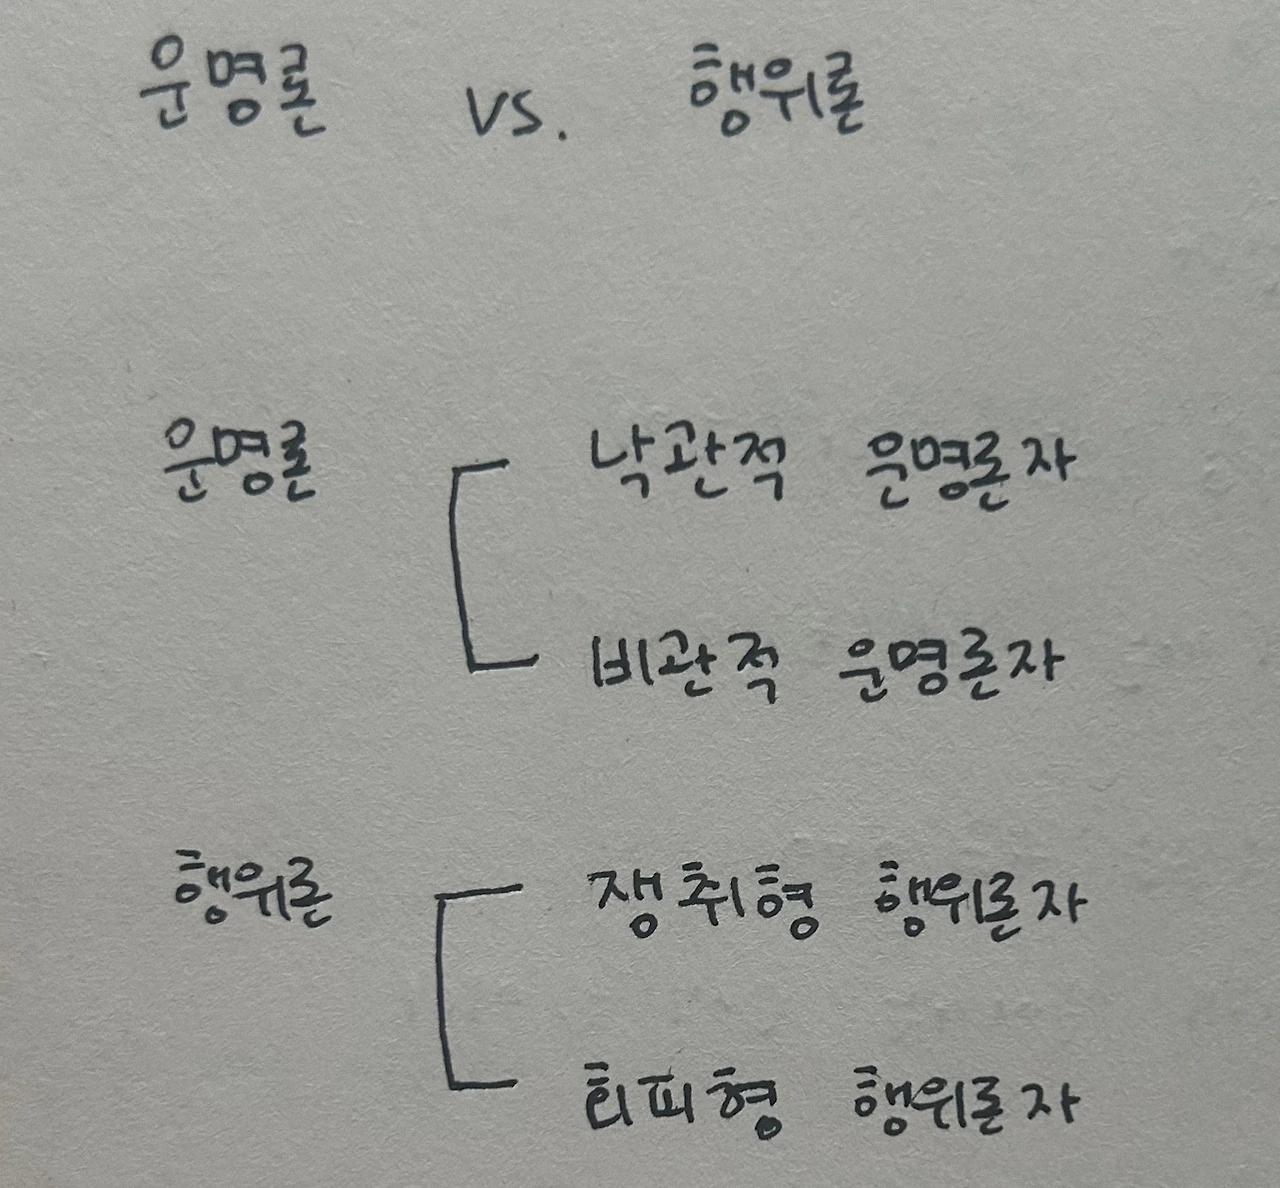 운명론 vs. 행위론
운명론 낙관적 운명론자
비관적 운명론자
행위론 쟁취형 행위론자
회피형 행위론자